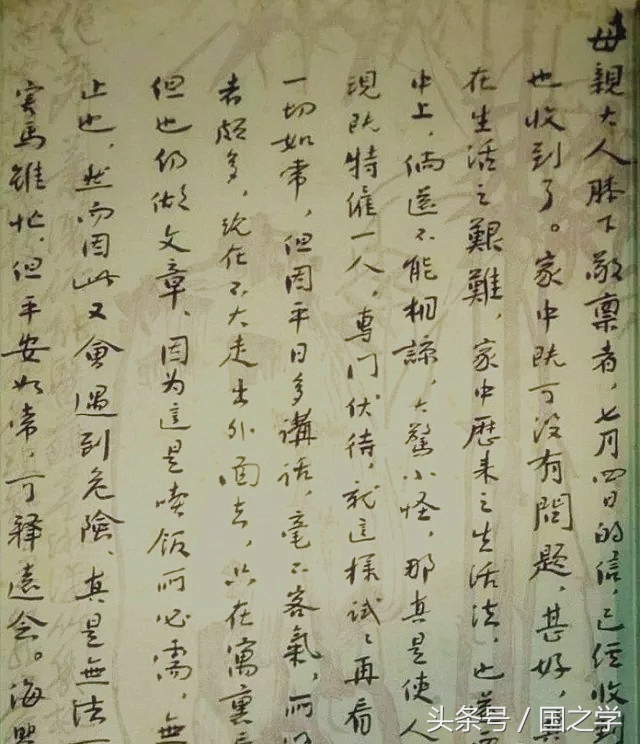 母親大人膝下敬稟者，七月四日的信，已经收到
也收到了。家中既可没有問題，甚好，
在生活之艱難，家中歷来之生活法，也
中上，倘還不能相諒，大驚小怪，那真是使人
現既特僱一人，專门伏待，就這樣試〻再看
一切如常，但因平日多講话，毫不客氣，而
者頗多，现在不大走出外面去，只在寓裏
但也仍做文章，因为這是喫饭所必需，無
止也，然而因此又會遇到危險，真是無法
害馬雖忙，但平安如常，可释遠念。海
头条号 / 国之学